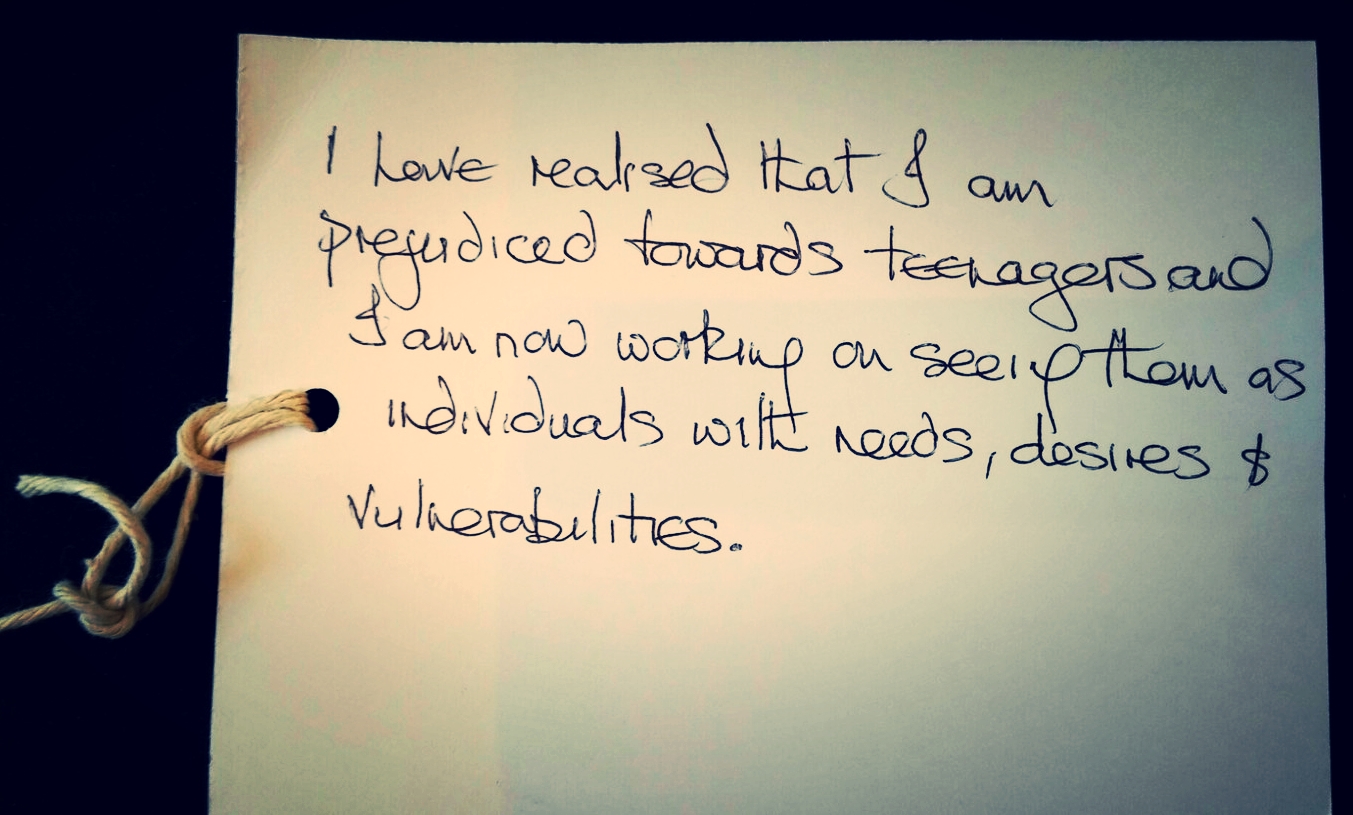 I have realised that I am
prejudiced towards teenagers and
I am now working on seeing them as
individuals with needs, desires &
vulnerabilities.